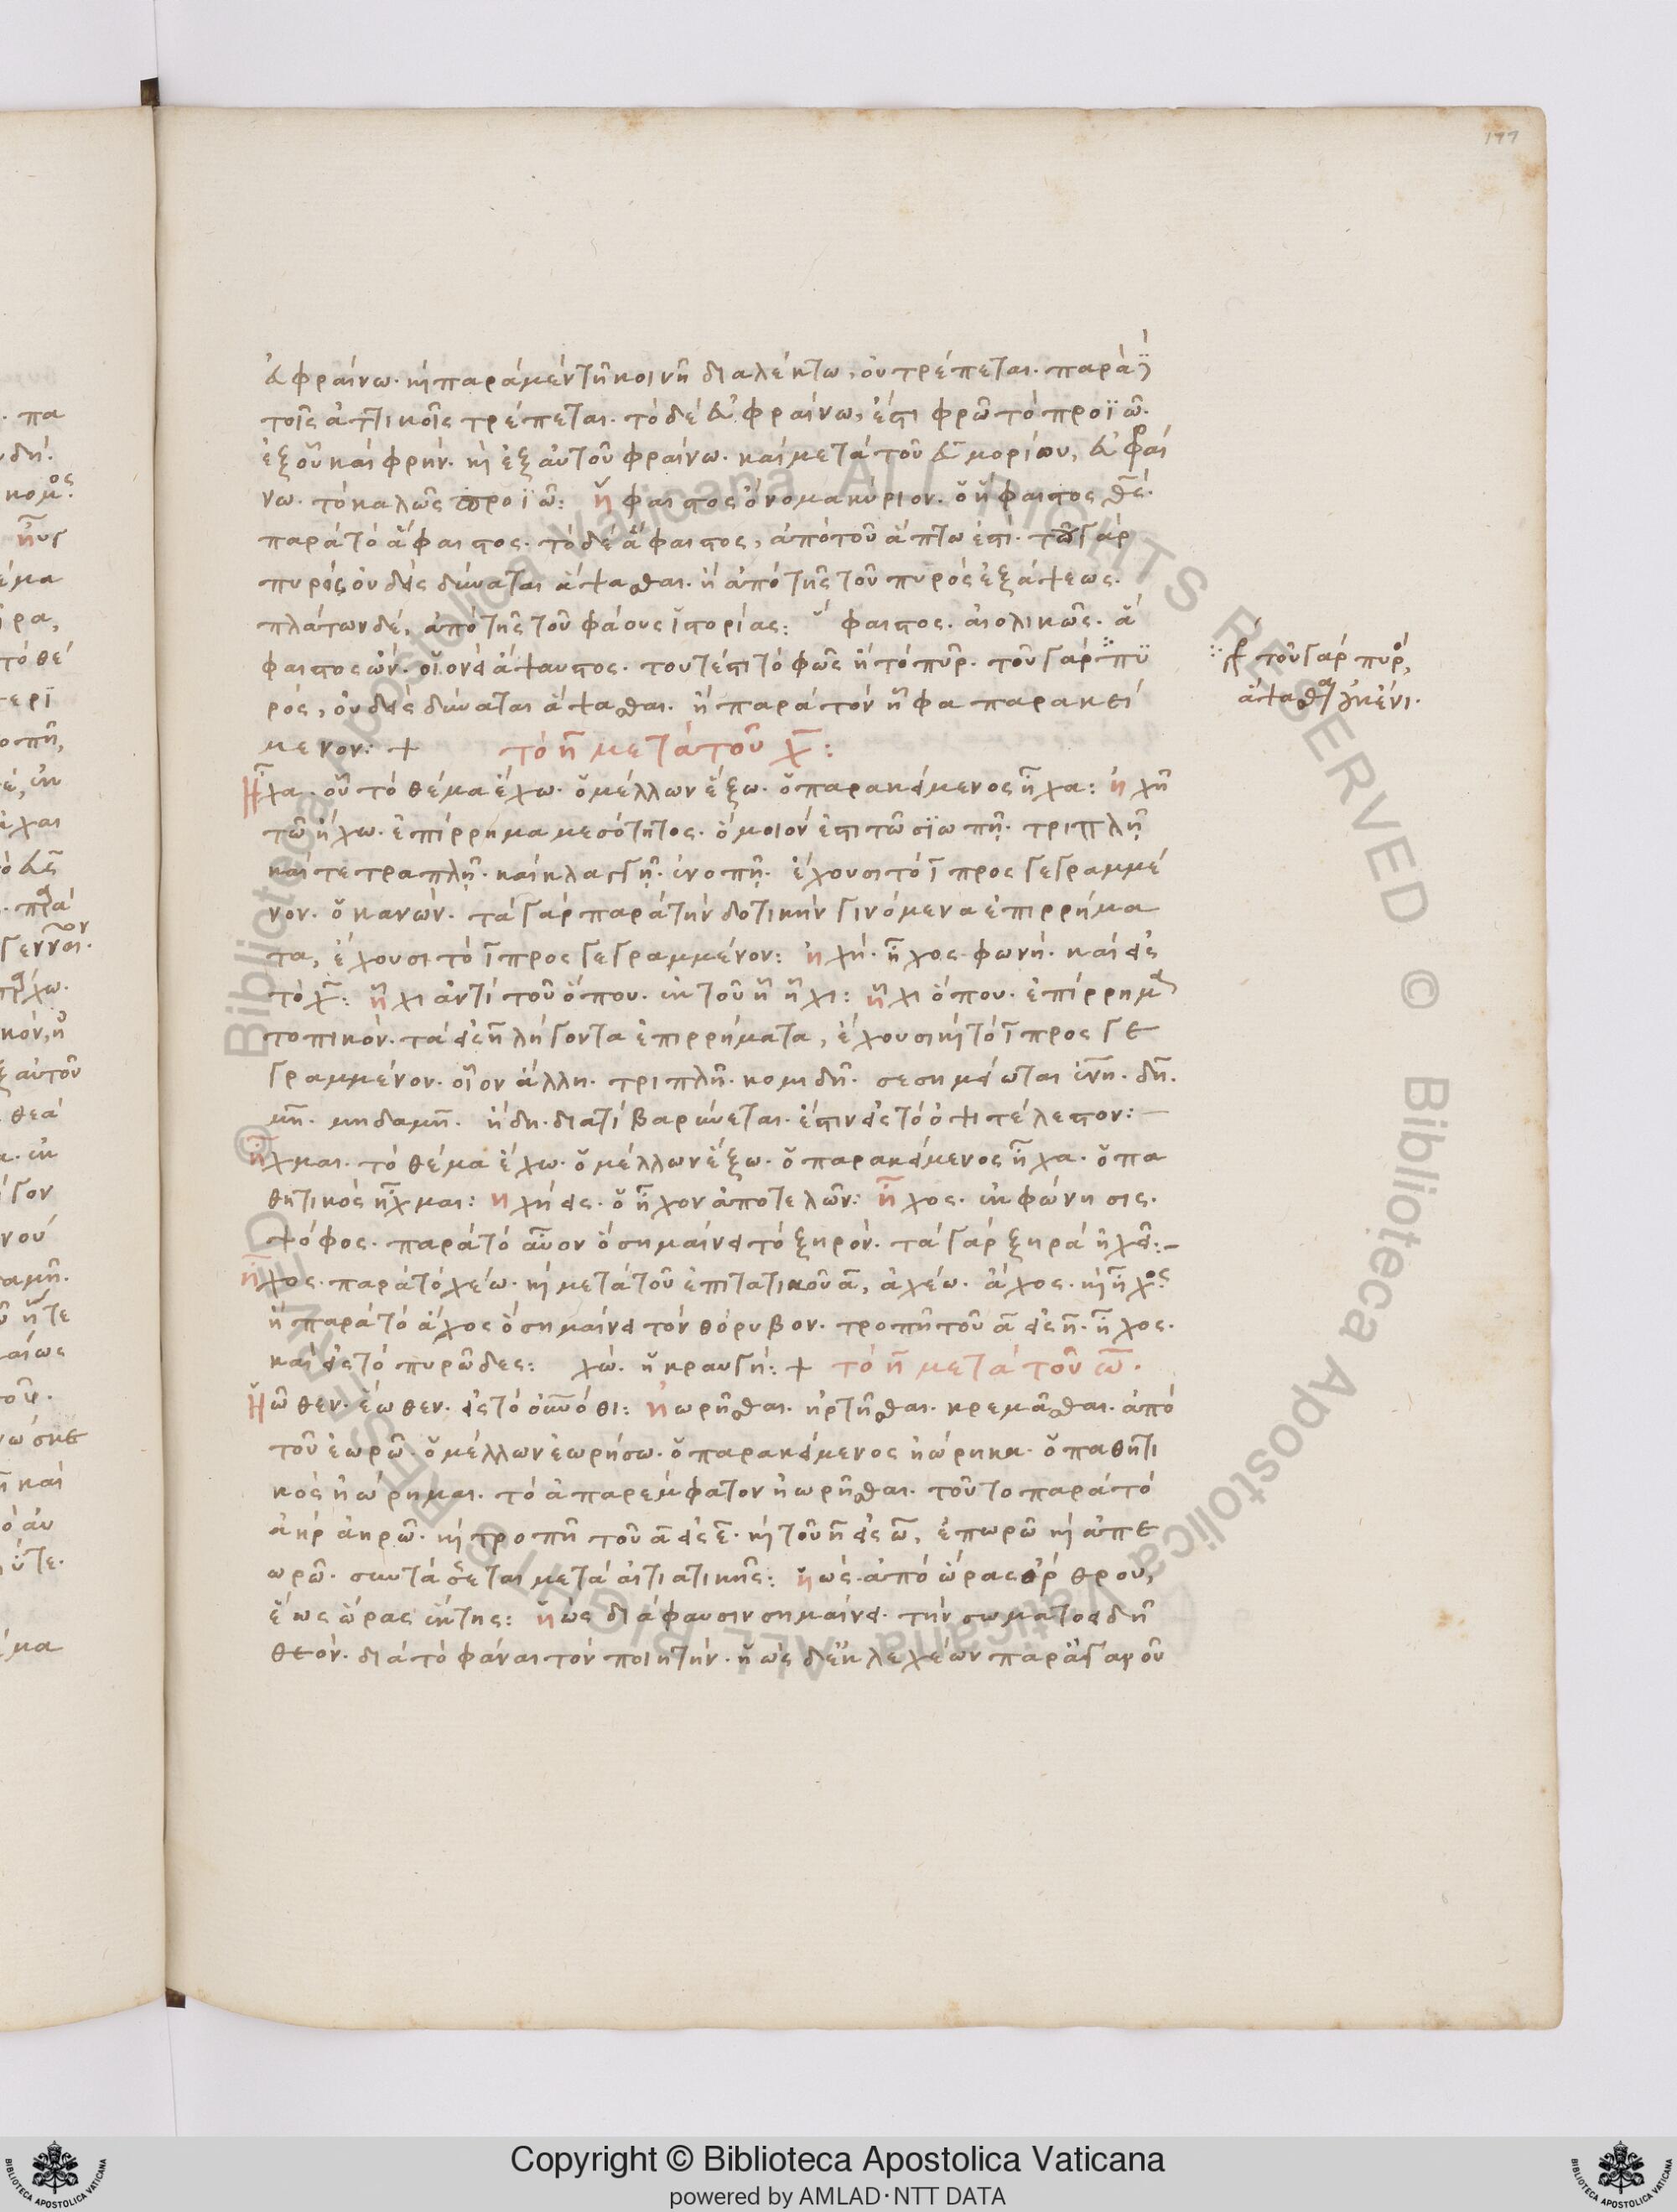 177
εὐφραίνω· κὶ παρὰ μὲν τῇ κοινῇ διαλέκτω, οὐ τρέπεται· παρὰ δὲ
τοῖς ἀττικοῖς τρέπεται· τὸ δὲ εὐφραίνω, ἔστι φρῶ τὸ προϊῶ·
ἐξ οὗ καὶ φρήν· κὶ ἐξ αὐτοῦ φραίνω· καὶ μετὰ τοῦ ευ μορίου, εὐφραί
νω· τὸ καλῶς προϊῶ: ἥφαιστος ὄνομα κύριον· ὁ ἥφαιστος θεός·
παρὰ τὸ ἄφαιστος· τὸ δὲ ἄφαιστος, ἀπὸ τοῦ ἅπτω ἐστί· τοῦ γὰρ
πυρός, οὐδεὶς δύναται ἅψασθαι· ἢ ἀπὸ τῆς τοῦ πυρὸς ἐξάψεως·
πλάτων δέ, ἀπὸ τῆς τοῦ φάους ἱστορίας: ἥφαιστος· αἰολικῶς· ἄ
φαιστος ὤν· οἱονεὶ ἄψαυστος· τουτέστι τὸ φῶς ἢ τὸ πῦρ· τοῦ γὰρ πυ
ρός, οὐδεὶς δύναται ἅψασθαι· ἢ παρὰ τὸν ἧφα παρακεί
μενον: +
τὸ η μετὰ τοῦ χ:
Ἦχα· οὗ τὸ θέμα ἔχω· ὁ μέλλων ἕξω· ὁ παρακείμενος ἦχα: ἠχῆ
τῶ ἤχω· ἐπίρρημα μεσότητος· ὅμοιόν ἐστι τῶ σιωπῇ· τριπλῇ
καὶ τετραπλῇ· καὶ κλαγγῇ· ἐνοπῇ· ἔχουσι τὸ ι προσγεγραμμέ
νον· ὁ κανών· τὰ γὰρ παρὰ τὴν δοτικὴν γινόμενα ἐπιρρήμα
τα, ἔχουσι τὸ ι προσγεγραμμένον: ἠχή· ἦχος· φωνή· καὶ εἰς
τὸ χ: ἧχι ἀντὶ τοῦ ὅπου· ἐκ τοῦ ἧ ἧχι: ἧχι ὅπου· ἐπίρρημα
τοπικόν· τὰ εἰς η λήγοντα ἐπιρρήματα, ἔχουσι κὶ τὸ ι προσγε
γραμμένον· οἷον ἄλλη· τριπλῆ· κομιδῆ· σεσημείωται νη· δη·
μη· μηδαμη· ἤδη· διατί βαρύνεται· ἔστιν εἰς τὸ ὀψιτέλεστον:
ἦχμαι· τὸ θέμα ἔχω· ὁ μέλλων ἕξω· ὁ παρακείμενος ἦχα· ὁ πα
θητικὸς ἦχμαι: ἠχήεις· ὁ ἦχον ἀποτελῶν: ἦχος· ἐκφώνησις·
ψόφος· παρὰ τὸ αὖον ὃ σημαίνει τὸ ξηρόν· τὰ γὰρ ξηρὰ ἠχεῖ:
ἦχος· παρὰ τὸ χέω· κὶ μετὰ τοῦ ἐπιτατικοῦ α, ἀχέω· ἄχος· κὶ ἦχος·
ἢ παρὰ τὸ ἄχος ὃ σημαίνει τὸν θόρυβον· τροπῆ τοῦ α εἰς η· ἦχος·
καὶ εἰς τὸ πυρῶδες: χώ· ἡ κραυγή: + τὸ η μετὰ τοῦ ω·
Ἠῶθεν· ἕωθεν· εἰς τὸ οἴκοθι: ἠωρῆσθαι· ἠρτῆσθαι· κρεμᾶσθαι· ἀπὸ
τοῦ ἐωρῶ· ὁ μέλλων ἐωρήσω· ὁ παρακείμενος ἠώρηκα· ὁ παθητι
κὸς ἠώρημαι· τὸ ἀπαρέμφατον ἠωρῆσθαι· τοῦτο παρὰ τὸ
ἀὴρ ἀηρῶ· κὶ τροπῆ τοῦ α εἰς ε· κὶ τοῦ η εἰς ω, ἐπωρῶ κὶ ἀπε
ωρῶ· συντάσσεται μετὰ αἰτιατικῆς: ἠώς· ἀπὸ ὥρας ὄρθρου,
ἕως ὥρας ἕκτης: ἠὼς διάφαυσιν σημαίνει· τὴν σωματοειδῆ
θεόν· διὰ τὸ φάναι τὸν ποιητήν· ἠὼς δ' ἐκ λεχέων παρ' ἀγαυοῦ
τοῦ γὰρ πυρός,
ἅψασθαι οὐκ ἔνι·